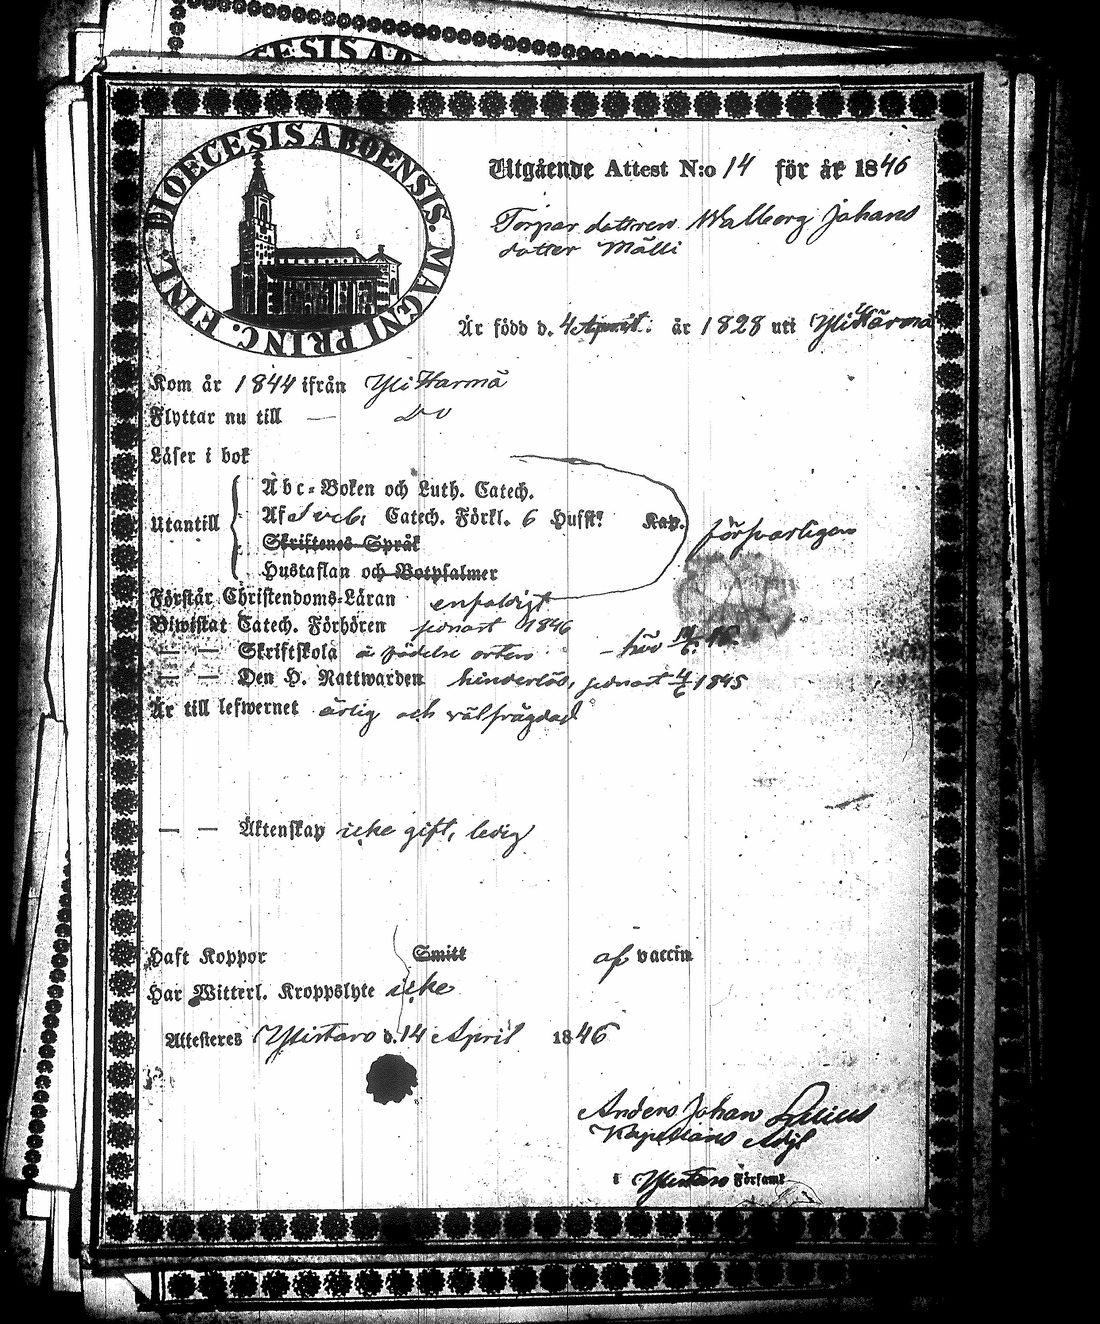 DIOECESIS ABOENSIS. MAGNI PRINC. FINL.
Utgående Attest N:o 14 för år 1846
Torpar dottren Walborg Johans
dotter Mälli
Är född d. 4 April. år 1828 uti Yli Härmä
Kom år 1844 ifrån Yli Härmä
Flyttar nu till — Do
Läser i bok
Abc-Boken och Luth. Catech.
Utantill Af Svebi Catech. Förkl. 6 Husst! Kap. försvarligen
Skriftenes Språk
Hustaflan och Botpsalmer
Förstår Christendoms-Läran enfaldigt
Biwistat Catech. Förhören senast 1846
— — Skriftskola å födelse orten
— — Den H. Nattwarden hinderlös, senast 1845
Är till lefwernet ärlig och välfrägdad
— — Äktenskap icke gift, ledig
Haft Koppor Smitt af vaccin
Har Witterl. Kroppslyte icke
Attesteres Ylistaro d. 14 April 1846
Anders Johan
Kapellans Adj
i Ylistaro Församl